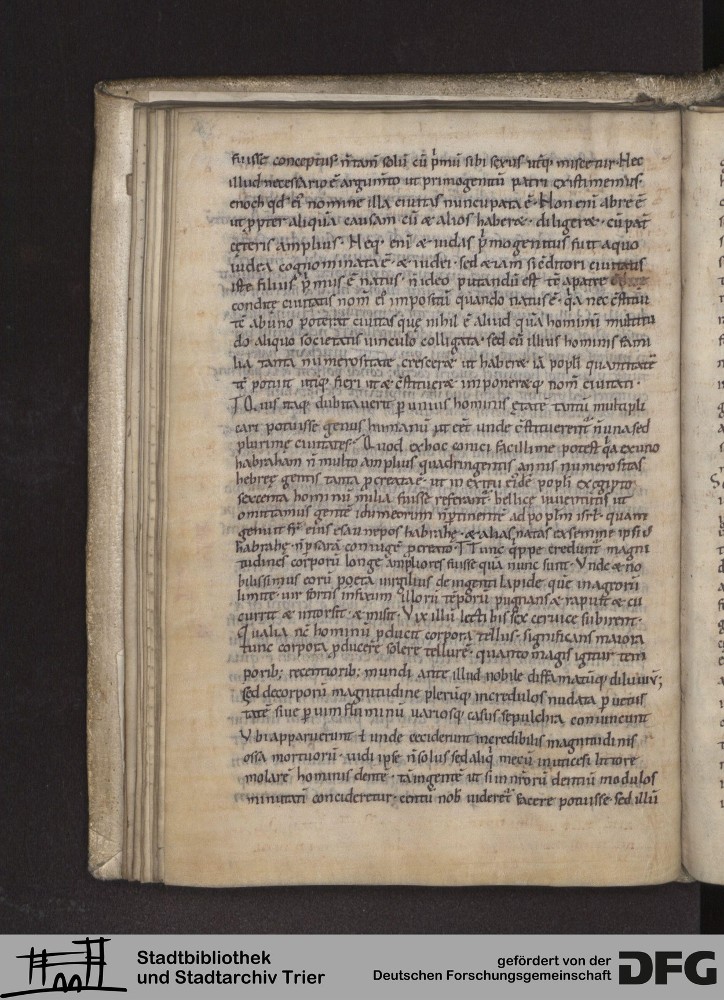 fuisse conceptus· ñ tam̄ solū cū p̄mū sibi sexus utq; miscetur· Hec
illud necessario ē argumto ut primogenitū patri existimemus·
enoch qd ei nomine illa ciuitas nuncupata ē· Non eni abre ē
ut ꝓpter aliquā causam cū & alios haber&· diliger& cū pat̄
ceteris amplius· Neq· eni & iudas p̄mogenitus fuit a quo
iudea cognominata ē· & iudei· sed &iam si c̄ditori ciuitatis
iste filius p̄mus ē natus· ñ ideo putandū est tc̄ a patre
condite ciuitatis nom̄ ei impositū quando natus ē· qa nec c̄stitui
tc̄ ab uno poterat ciuitas que nihil ē aliud quā hominū multitu
do aliquo societatis uinculo colligata· sed cū illius hominis fami
lia tanta numerositate crescer& ut haber& iā popli quantitatē
tc̄ potuit utiq; fieri ut & c̄stituer& & imponer& q; nom̄ ciuitati·
Quis itaq; dubitauerit p unius hominis etatē tantū multipli
cari potuisse genus humanū ut eet unde c̄stituerent ñ una sed
plurime ciuitates· Quod ex hoc conici facillime potest qa ex uno
habraham ñ multo amplius quadringentis annis numerositas
hebree gentis tanta ꝓcreata ē· ut in exitu eide popli ex egipto
sexcenta hominū milia fuisse referant· bellice iuuentutis ut
omittamus gentē idumeorum ñ ptinentē ad poplm isrl· quam
genuit fr̄ eius esau nepos habrahe· & alias natas ex semine ipsius
habrahe· ñ p sara coniugē ꝓcreato Tunc q̄ppe credunt magni
tudines corporū longe ampliores fuisse quā nunc sunt· Vnde & no
bilissimus eorū poeta uirgilius de ingenti lapide quē in agrorū
limite· uir fortis infixum illorū tēporū pugnans & rapuit & cu
currit & intorsit· & misit· Vix illū lecti bis sex ceruice subirent·
Qualia nc̄ hominū ꝓducit corpora tellus· significans maiora
tunc corpora ꝓducere solere tellurē· quanto magis igitur tem
porib; recentiorib; mundi ante illud nobile diffamatūq; diluuiū;
Sed de corporū magnitudine plerūq; incredulos nudata p uetus
tatē siue p uim fluminū uariosq; casus sepulchra conuincunt
Vbi apparuerunt ł unde ceciderunt incredibilis magnitudinis
ossa mortuorū· uidi ipse ñ solus sed aliq mecū in uticesi littore
molarē hominis dentē· tā ingentē ut si in nrorū dentiū modulos
minutatī concideretur· centū nob uideret facere potuisse· sed illū
Stadtbibliothek
und Stadtarchiv Trier
gefördert von der
Deutschen Forschungsgemeinschaft
DFG